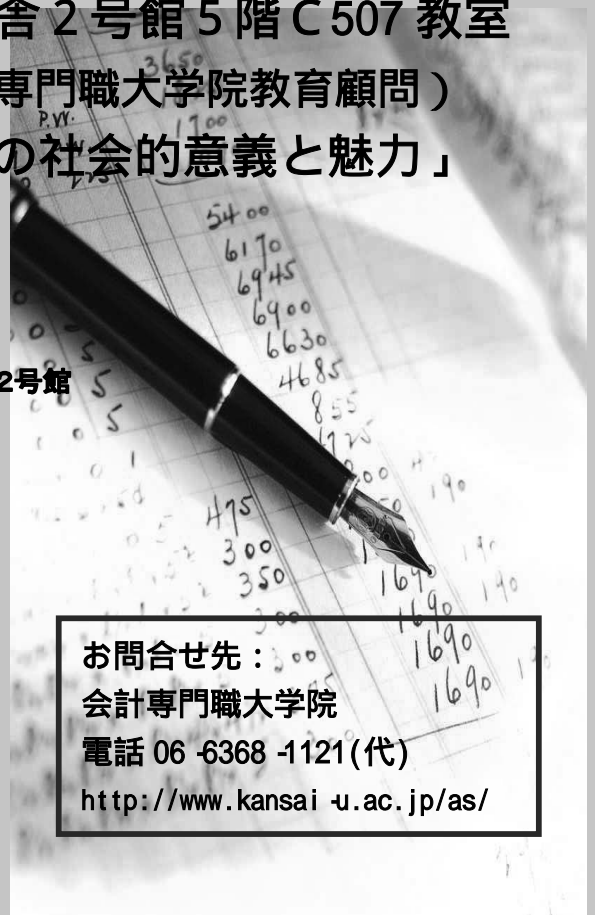 舎2号館5階C507教室
専門職大学院教育顧問）
の社会的意義と魅力」
3650
P.W.
1700
5400
6170
6945
6900
6630
4685
855
2号館
5
5
5
190
475
300
350
300
300
1690
1690
1690
1690
190
お問合せ先：
会計専門職大学院
電話 06-6368-1121(代)
http://www.kansai-u.ac.jp/as/